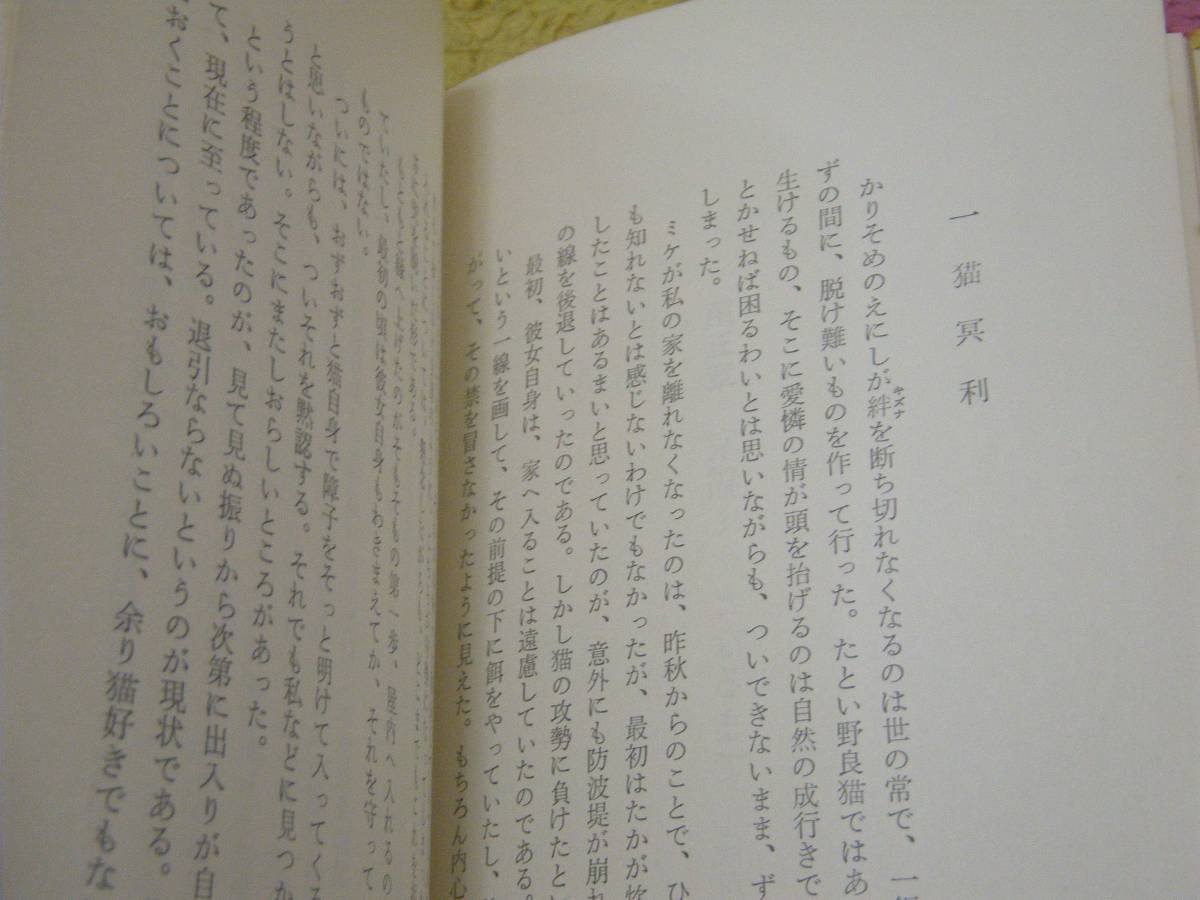 一 猫 冥 利
かりそめのえにしが絆を断ち切れなくなるのは世の常で、一
キズナ
ずの間に、脱け難いものを作って行った。たとい野良猫ではあ
生けるもの、そこに愛憐の情が頭を抬げるのは自然の成行きで
とかせねば困るわいとは思いながらも、ついできないまま、ず
しまった。
ミケが私の家を離れなくなったのは、昨秋からのことで、ひ
も知れないとは感じないわけでもなかったが、最初はたかが
したことはあるまいと思っていたのが、意外にも防波堤が崩れ
の線を後退していったのである。しかし猫の攻勢に負けたとい
最初、彼女自身は、家へ入ることは遠慮していたのである。
いという一線を画して、その前提の下に餌をやっていたし、
がって、その禁を冒さなかったように見えた。もちろん内心
もともと縁へ上げたのがそもそもの第一歩、屋内へ入れるの
ていたし、最初の頃は彼女自身もわきまえてか、それを守って
ものではない。
ついには、おずおずと猫自身で障子をそっと明けて入ってくる
と思いながらも、ついそれを黙認する。それでも私などに見つか
うとはしない。そこにまたしおらしいところがあった。
という程度であったのが、見て見ぬ振りから次第に出入りが自
て、現在に至っている。退引ならないというのが現状である。
おくことについては、おもしろいことに、余り猫好きでもな